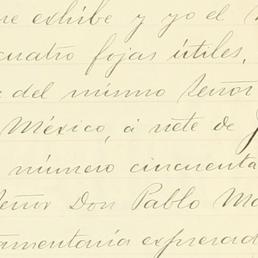 me exhibe y yo el
cuatro fojas útiles,
del mismo Señor
México, á siete de
número cincuenta
Señor Don Pablo
tamentaria expresad